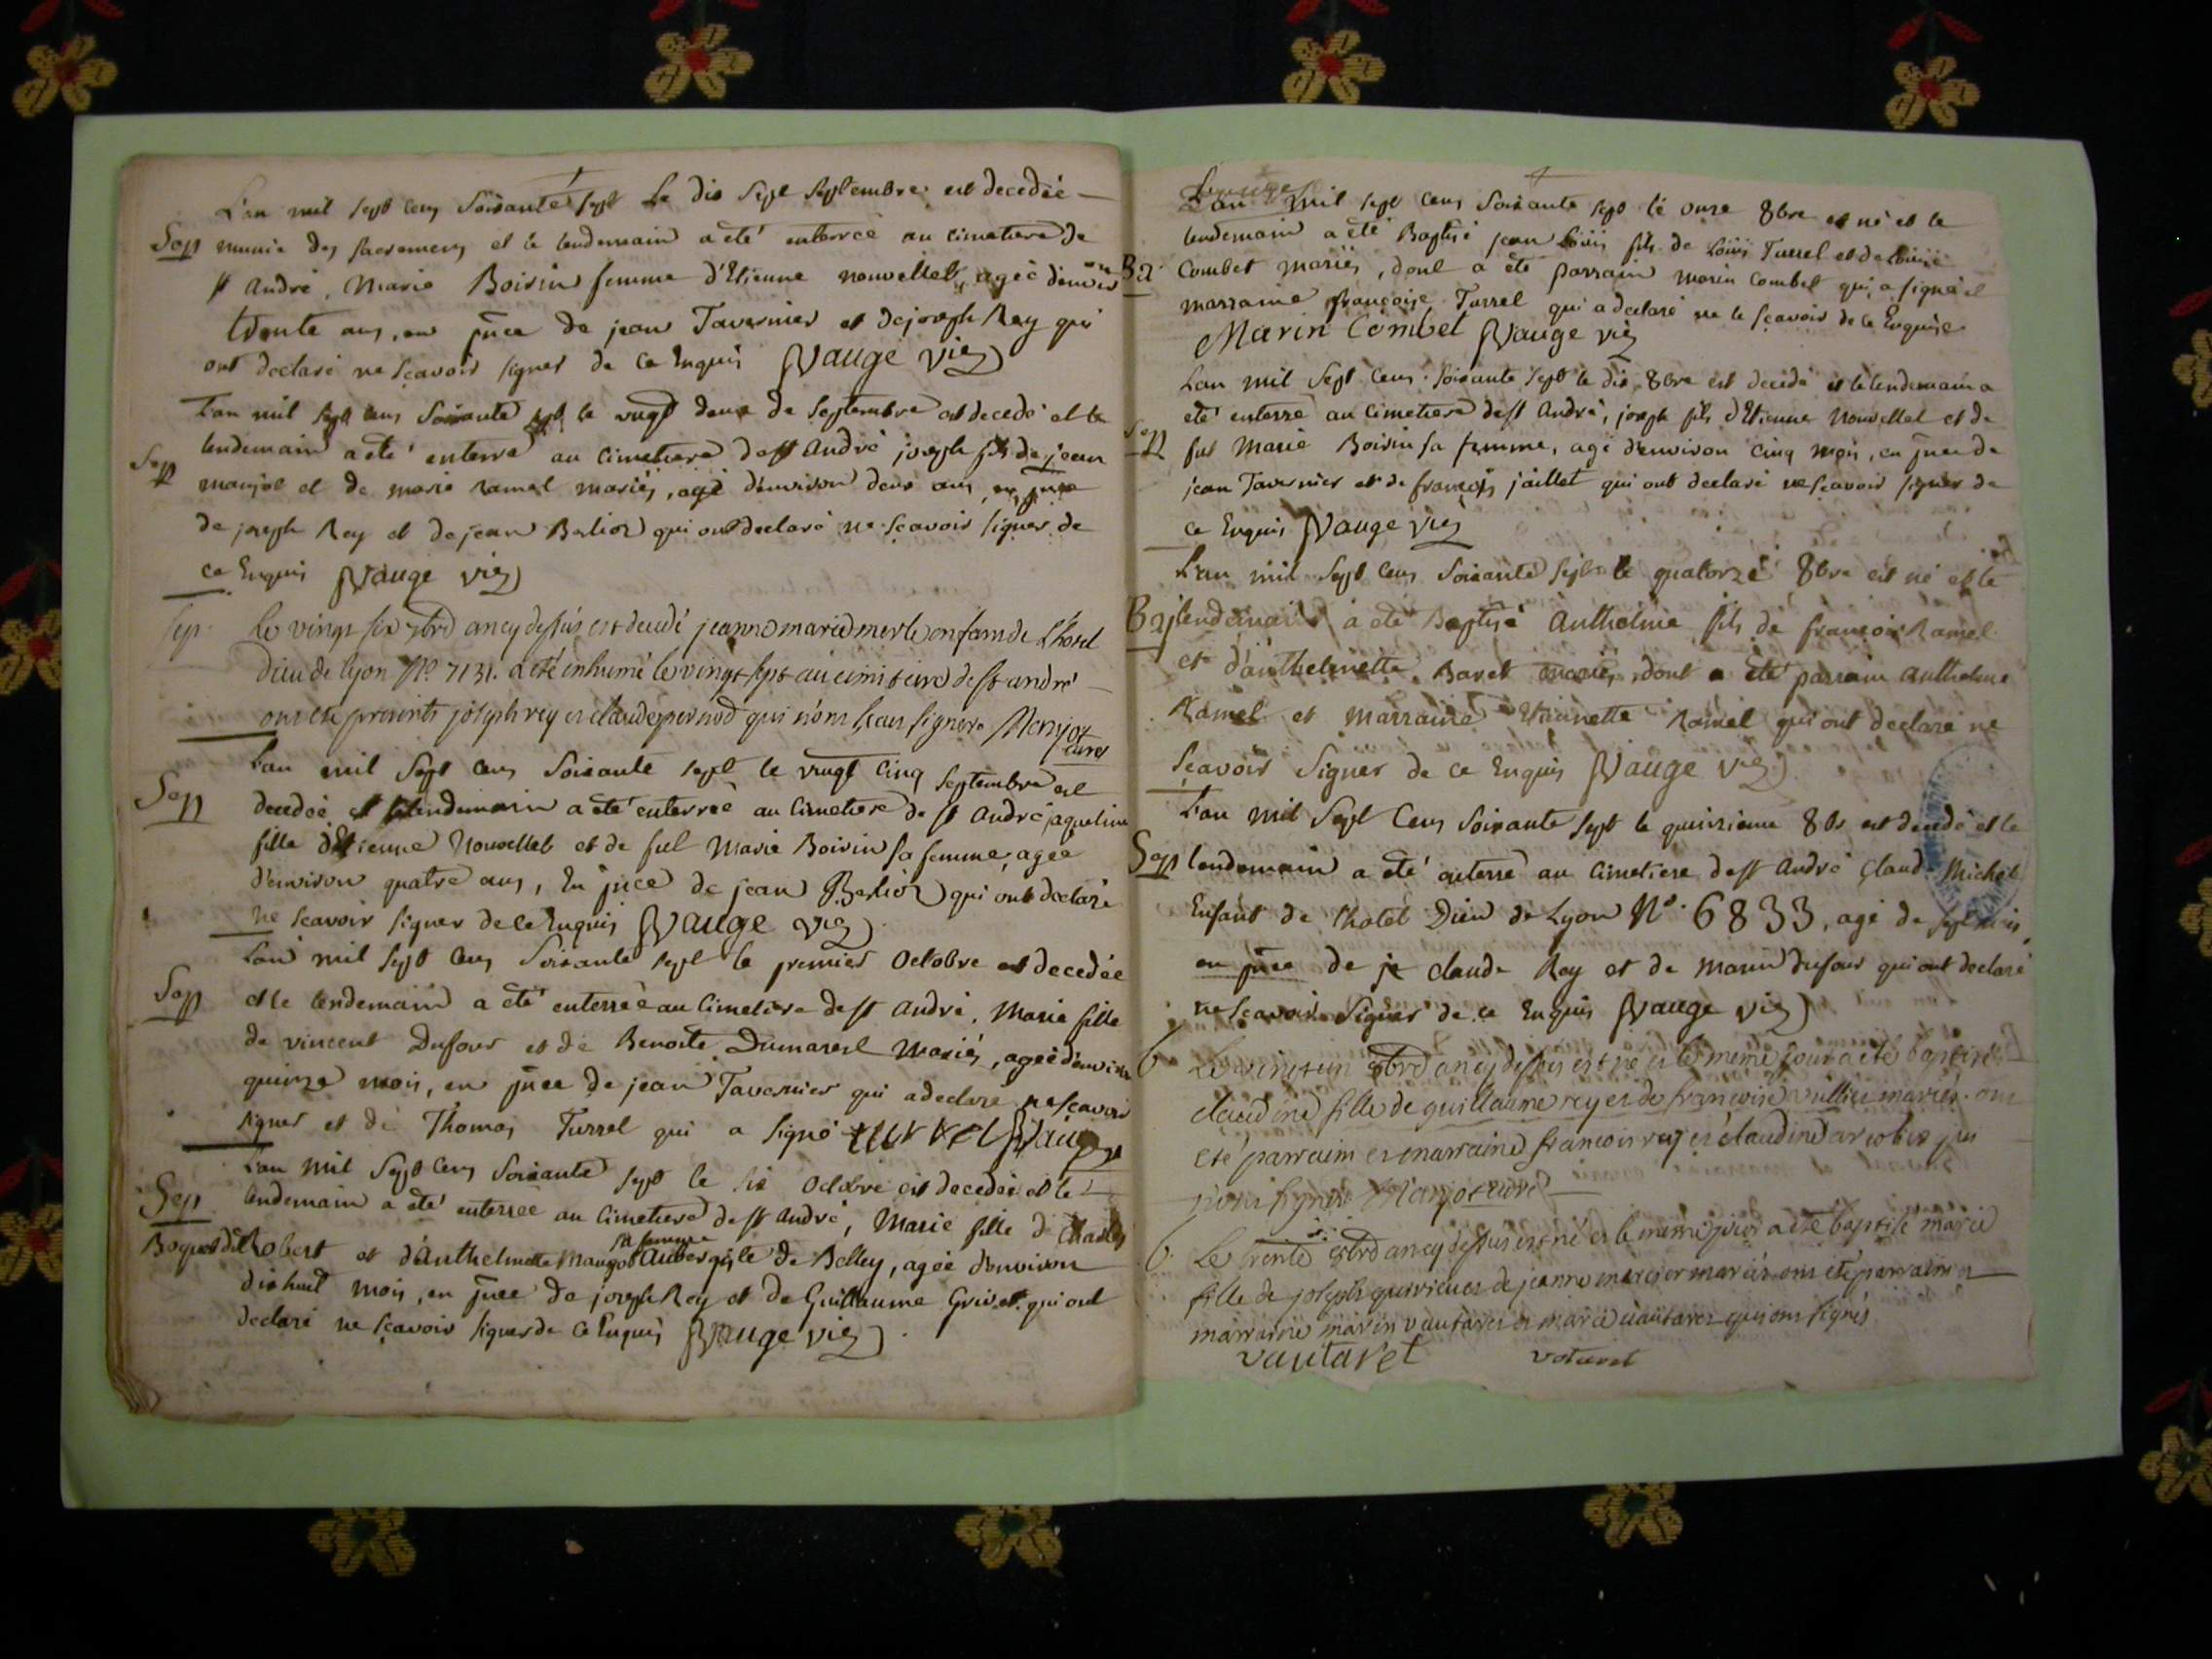 L'an mil sept cens soixante sept Le dix sept septembre est decedée
Sep munie des sacremens et le lendemain a été enterrée au cimetiere de
st André, Marie Boisin femme d'Etienne nouvellet, agée d'environ
trente ans, en pñce de jean Tavernier et de joseph Rey qui
ont declaré ne scavoir signer de ce Enquis Vauge vic
L'an mil sept cens soixante sept le vingt deux de septembre est decedé et le
Sep lendemain a été enterré au cimetiere de st André joseph fils de jean
manjot et de marie Ramel mariés, agé d'environ deux ans, en pñce
de joseph Rey et de jean Berlioz qui ont declaré ne scavoir signer de
ce Enquis Vauge vic
Sep. Le vingt six 7bre an cy dessus est decedé jeanne marie merle enfant de L'hotel
dieu de lyon N° 7131. a été inhumé le vingt sept au cimitiere de st andré
ont été presents joseph rey et claude pernod qui n'ont sceu signer Manjot
curé
L'an mil sept cens soixante sept le vingt cinq septembre est
Sep decedée et le lendemain a été enterrée au cimetiere de st André jaqueline
fille d'Etienne Nouvellet et de fut Marie Boisin sa femme, agée
d'environ quatre ans, En pñce de jean Berlioz qui ont declaré
ne scavoir signer de ce Enquis Vauge vic
L'an mil sept cens soixante sept le premier Octobre est decedée
Sep et le lendemain a été enterrée au cimetiere de st André, Marie fille
de vincent Dufour et de Benoite Dumarest mariés, agée d'environ
quinze mois, en pñce de jean Tavernier qui a declaré ne scavoir
signer et de Thomas Turrel qui a signé Vauge
L'an mil sept cens soixante sept le six Octobre est decedée et le
Sep lendemain a été enterrée au cimetiere de st André, Marie fille de Charles
sa femme
Boquet dit Robert et d'Anthelmette Maugot Aubergiste de Belley, agée d'environ
dix huit mois, en pñce de joseph Rey et de Guillaume Grivet qui ont
declaré ne scavoir signer de ce Enquis Vauge vic
L'an mil sept cens soixante sept le onze 8bre est né et le
lendemain a été Baptisé jean Loüis fils de Loüis Turrel et de Loüise
Ba Combet mariés, dont a été parrain marin Combet qui a signé et
marraine françoise Turrel qui a declaré ne le scavoir de ce Enquise
Marin Combet Vauge vic
L'an mil sept cens soixante sept le dix 8bre est decedé et le lendemain a
été enterré au cimetiere de st André, joseph fils d'Etienne Nouvellet et de
Sep fut Marie Boisin sa femme, agé d'environ cinq mois, en pñce de
jean Tavernier et de françois jaillet qui ont declaré ne scavoir signer de
ce Enquis Vauge vic
L'an mil sept cens soixante sept le quatorze 8bre est né et le
Bap lendemain a été Baptisé Anthelme fils de françois Ramel
et d'anthelmette Baret mariés, dont a été parrain Anthelme
Ramel et marraine Etiennette Ramel qui ont declaré ne
scavoir signer de ce Enquis Vauge vic
L'an mil sept cens soixante sept le quinzieme 8bre est decedé et le
Sep lendemain a été enterré au cimetiere de st André Claude Michel
Enfant de l'hotel Dieu de Lyon N°. 6833, agé de sept mois,
en pñce de claude Rey et de Marin dufour qui ont declaré
ne scavoir signer de ce Enquis Vauge vic
b Le vint un 8bre an cy dessus est né et le meme jour a été baptisé
claudine fille de guillaume rey et de françoise vullier mariés. ont
été parrain et marraine francois rey et claudine
n'ont signé Manjot curé
b. Le trente 8bre an cy dessus est né et le meme jour a été baptisé marie
fille de joseph et de jeanne mercier mariés ont été parrain et
marraine marin vautaret et marie vautaret qui ont signés
vautaret votaret